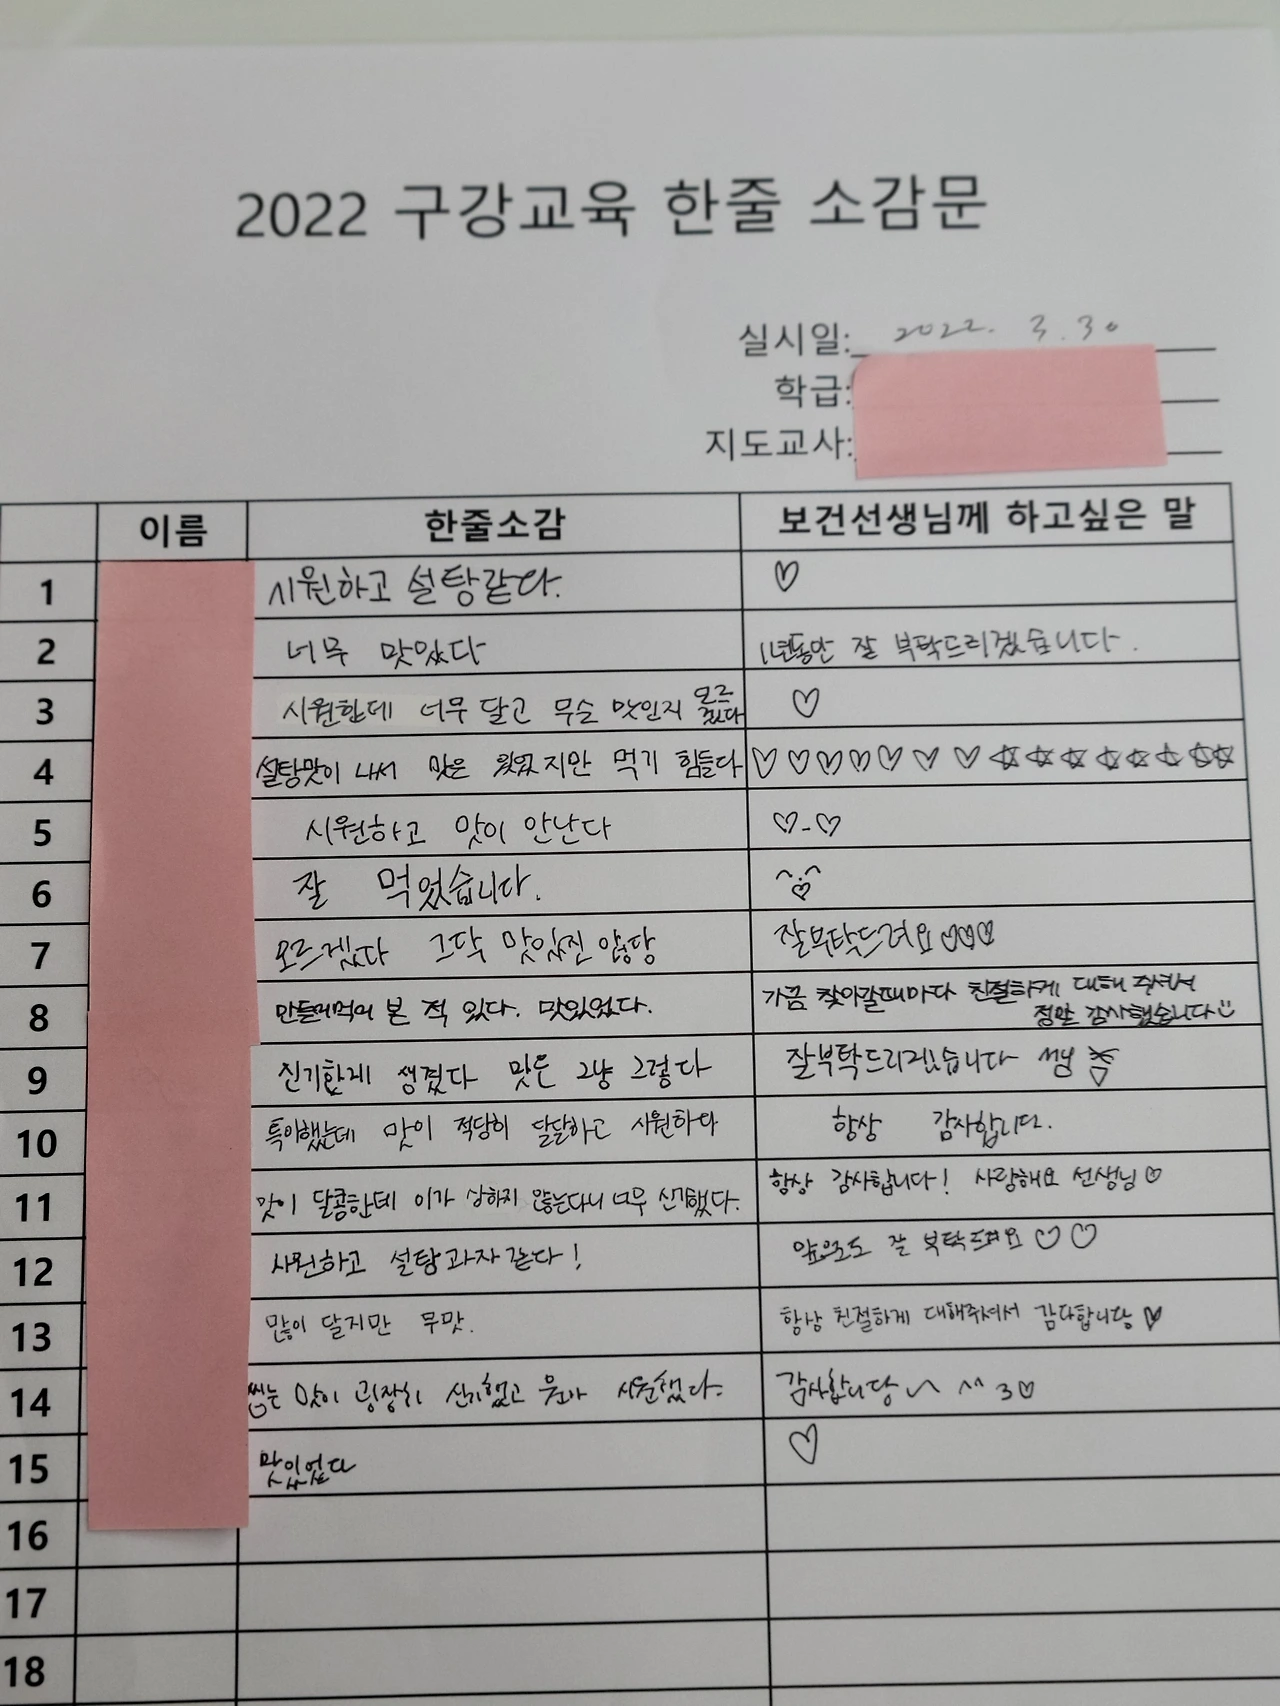 2022 구강교육 한줄 소감문
실시일: 2022. 3.30
학급:
지도교사:
이름 한줄소감 보건선생님께 하고싶은 말
1 시원하고 설탕같다. ♡
2 너무 맛있다 1년동안 잘 부탁드리겠습니다.
3 시원한데 너무 달고 무슨 맛인지 모르겠다 ♡
4 설탕맛이 나서 맛은 있지만 먹기 힘들다 ♡♡♡♡♡♡♡☆☆☆☆☆☆☆☆
5 시원하고 맛이 안난다 ♡-♡
6 잘 먹었습니다.
7 모르겠다 그닥 맛있진 않당 잘부탁드려요♡♡♡
8 만들어먹어 본 적 있다. 맛있었다. 가끔 찾아갈때마다 친절하게 대해 주셔서
정말 감사했습니다
9 신기하게 생겼다 맛은 그냥 그렇다 잘부탁드리겠습니다 쌤
10 특이했는데 맛이 적당히 달달하고 시원하다 항상 감사합니다.
11 맛이 달콤한데 이가 상하지 않는다니 너무 신기했다. 항상 감사합니다! 사랑해요 선생님♡
12 시원하고 설탕과자 같다! 앞으로도 잘 부탁드려요 ♡♡
13 많이 달지만 무맛. 항상 친절하게 대해주셔서 감다합니당 ♥
14 씹는 맛이 굉장히 신기했고 시원했다. 감사합니당 ^^ 3♡
15 맛있었다 ♡
16
17
18